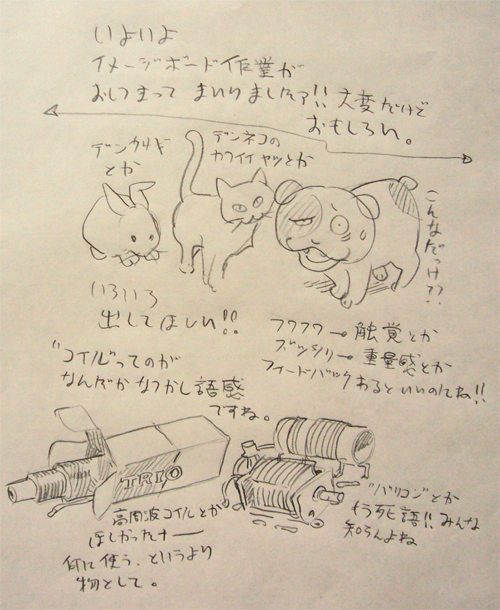 いよいよ
イメージボード作業が
おしつまって まいりましたァ!! 大変だけど
おもしろい。
デンウサギ
とか
デンネコの
カワイイヤツとか
こんなだっけ???
いろいろ
出してほしい!!
フワフワ→触覚とか
ズッシリ→重量感とか
フィードバックあるといいのでね!!
"コイル"ってのが
なんだかなつかし語感
ですね。
TRIO
高周波コイルとか
ほしかったナー
何に使う、というより
物として。
"バリコン"とか
もう死語!! みんな
知らんよね